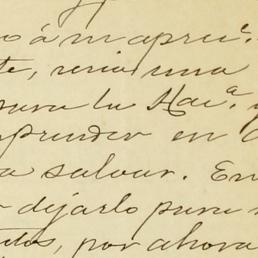 ó á m apreci.
te, seria una
para la Hac.ª y
mprender en
a salvar. En
dejarlo para
tos, por ahora